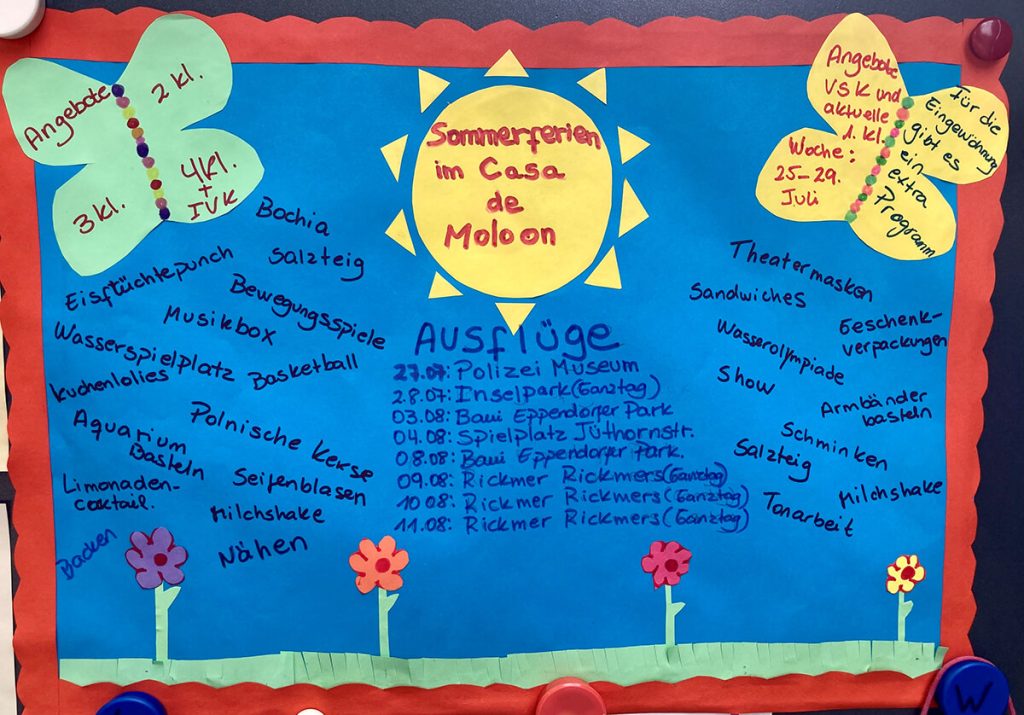 Angebote
2 kl.
3 kl.
4kl.
+
IVK
Sommerferien
im Casa
de
Moloon
Angebote
VSK und
aktuelle
1. kl.
Woche:
25-29.
Juli
Für die
Eingewöhnung
gibt es
ein
extra
Programm
Bochia
Salzteig
Eisflüchtepunch
Bewegungsspiele
Musikbox
Wasserspielplatz
Basketball
kuchenlolies
Polnische Kekse
Aquarium
Basteln
Seifenblasen
Limonaden-
cocktail.
Milchshake
Backen
Nähen
Ausflüge
27.07: Polizei Museum
28.07: Inselpark (Ganztag)
03.08: Baui Eppendorfer Park
04.08: Spielplatz Jüthornstr.
08.08: Baui Eppendorfer Park.
09.08: Rickmer Rickmers (Ganztag)
10 08: Rickmer Rickmers (Ganztag)
11.08: Rickmer Rickmers (Ganztag)
Theatermasken
Sandwiches
Geschenk-
verpackungen
Wasserolympiade
Show
Armbänder
basteln
Schminken
Salzteig
Milchshake
Tonarbeit
W